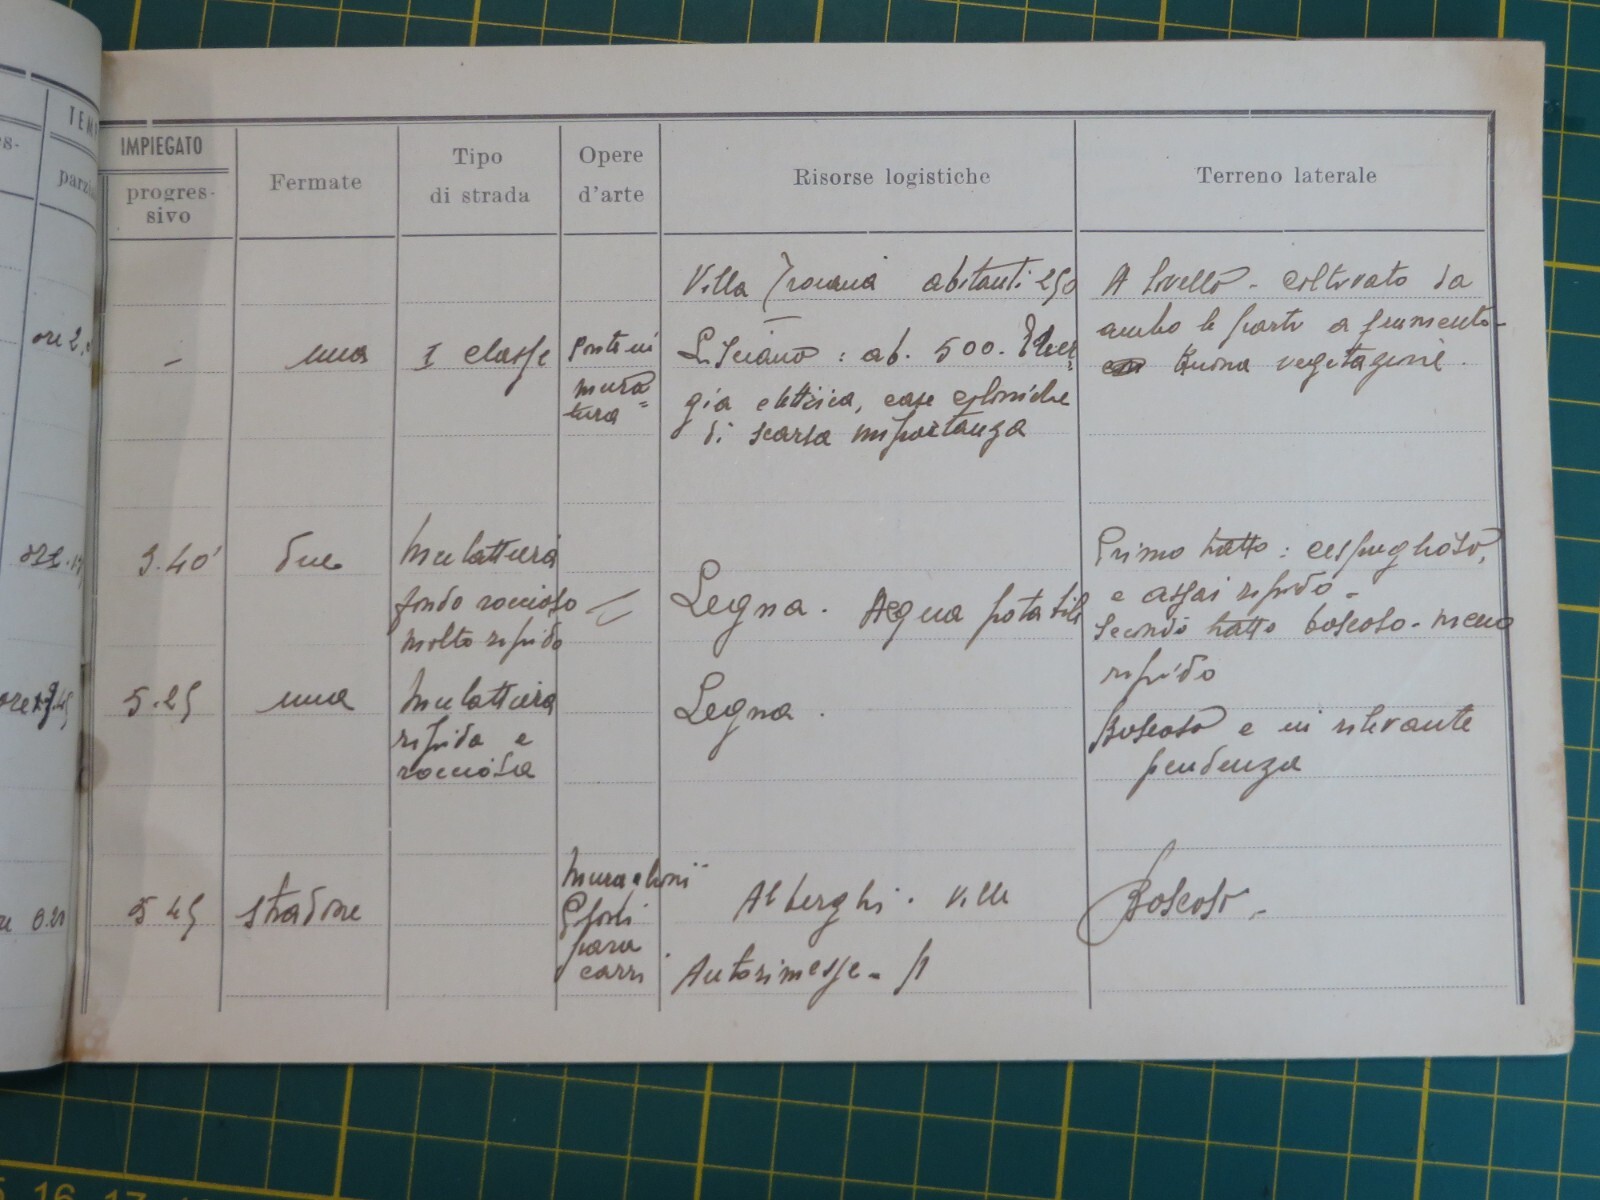 TEM
IMPIEGATO
progres-
sivo
Fermate
Tipo
di strada
Opere
d'arte
Risorse logistiche
Terreno laterale
ore 2.
-
una
I classe
Ponte in
mura=
tura
Villa Troiana abitanti 250
Lisciano : ab. 500. Ener=
gia elettrica, case coloniche
di scarsa importanza
A livello - coltivato da
ambo le parti a frumento-
Buona vegetazione.
3.40'
due
Mulattiera
fondo roccioso
molto ripido
=
Legna. Acqua potabile
Primo tratto: cespuglioso,
e assai ripido -
Secondo tratto boscoso - meno
ripido
5.25
una
Mulattiera
ripida e
rocciosa
Legna.
Boscoso e in rilevante
pendenza
5 45
stradone
Muraglioni
para
carri.
Alberghi. Ville
Autorimesse -
Boscoso -
16 17